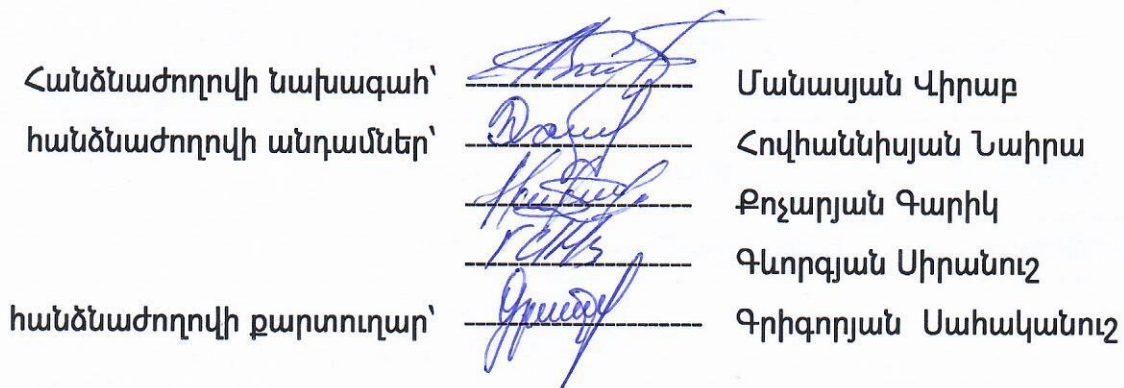 Հանձնաժողովի նախագահ՝ ---------------------- Մանասյան Վիրաբ
հանձնաժողովի անդամներ՝ ---------------------- Հովհաննիսյան Նաիրա
---------------------- Քոչարյան Գարիկ
---------------------- Գևորգյան Սիրանուշ
հանձնաժողովի քարտուղար՝ ---------------------- Գրիգորյան Սահականուշ